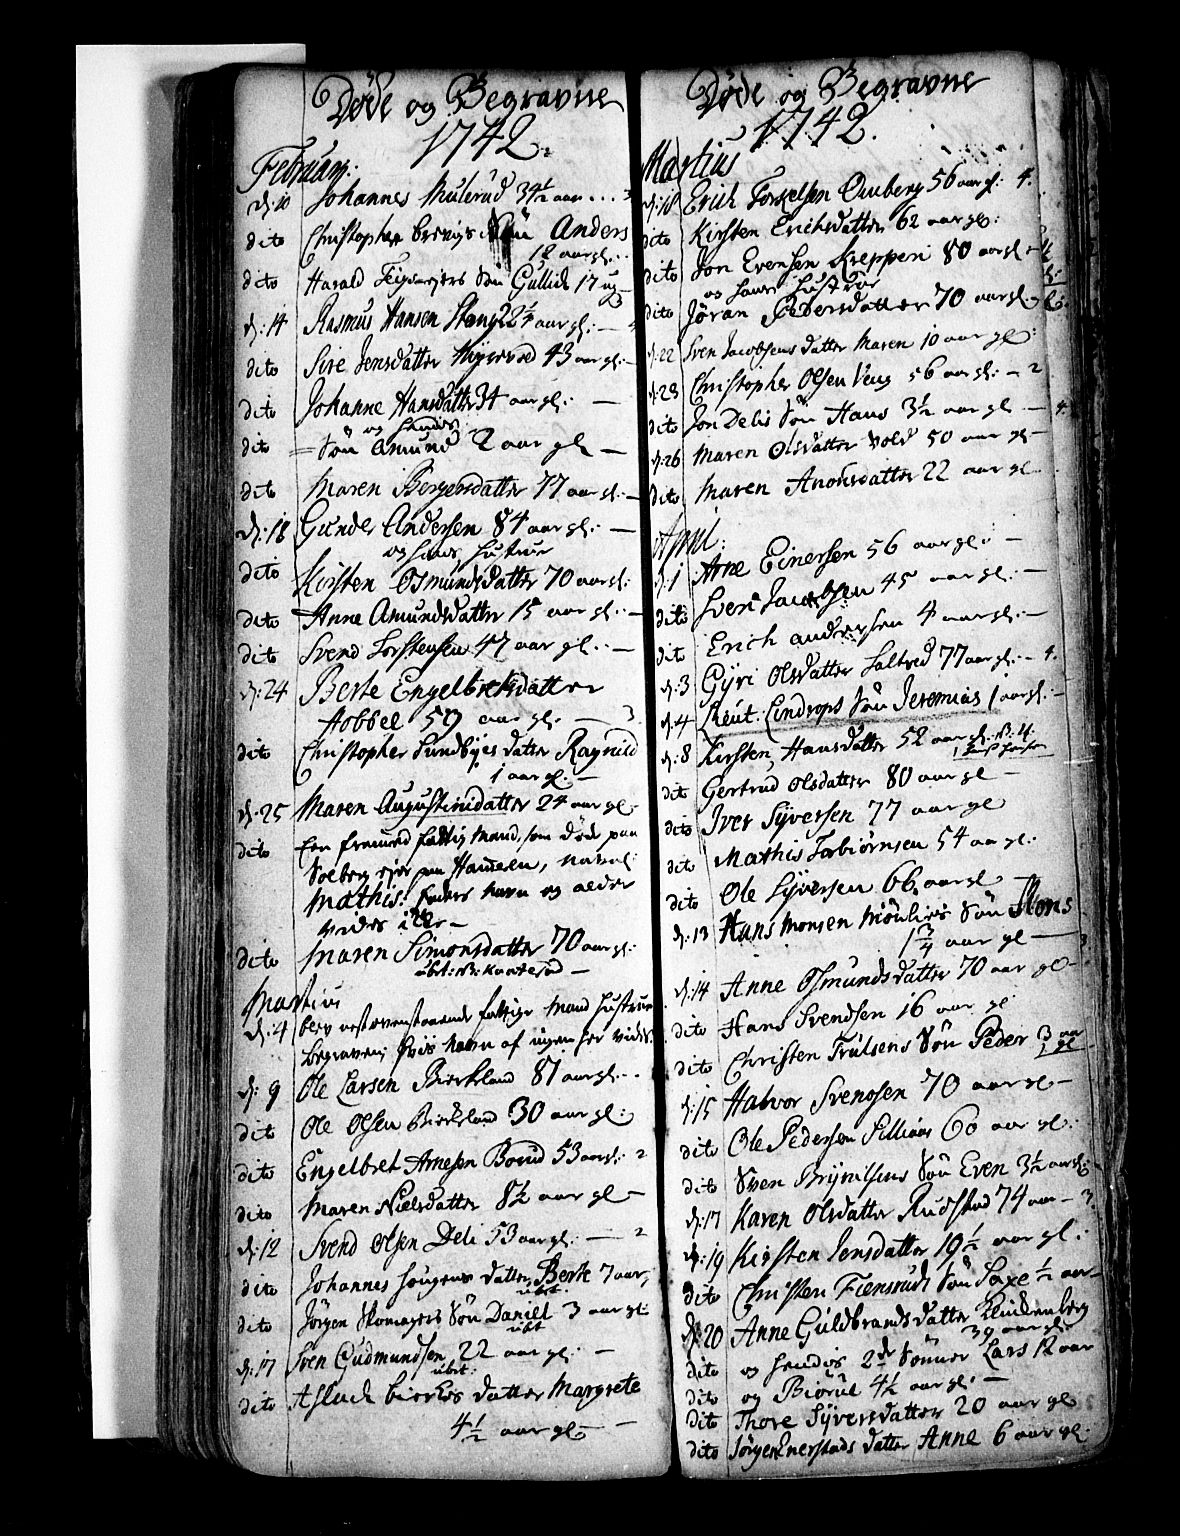 Døde og Begravne
1742.
Februarij:
d: 10 Johannes Mulerud 34½ aar... 3
dito Christopher Søn Anders
12 aar gl:..
dito Harald Søn Gullick 17 ug
d: 14 Rasmus Hansen Stang 22¼ aar gl: — 4
dito Sire Jensdatter 43 aar gl: —
dito Johanne Hansdatter 34 aar gl: —
og hendes
dito = Søn Amund 2 aar gl —
dito Maren Bergersdatter 77 aar gl: —
d: 18 Gunder Andersen 84 aar gl: —
og hans hustrue
dito Kirsten Osmundsdatter 70 aar gl:
dito Anne Amundsdatter 15 aar gl: —
dito Svend Torstensen 47 aar gl: —
d: 24 Berte Engelbretsdatter
Hobbel 59 aar gl: — 3
dito Christopher Sundbyes datter Ragnild
1 aar gl: —
d: 25 Maren Augustinidatter 24 aar gl:
dito Een fremmed fattig Mand, som døde paa
Solberg ejer paa navnl:
Mathis: faders navn og alder
vides icke —
dito Maren Simonsdatter 70 aar gl:
ubt: —
Martius
d: 4 blev næst ovenstaaende fattige Mand hustrue
begraven; hvis navn af ingen her vides.
d: 9 Ole Larsen Bierkeland 81 aar gl: ..
dito Ole Olsen Bierkeland 30 aar gl:
dito Engelbret Arnesen Borud 53 aar gl: 2
dito Maren Nielsdatter 8½ aar gl —
d: 12 Svend Olsen Deli 53 aar gl: — 2
dito Johannes datter Berte 7 aar,
ubt.
dito Jörgen Skomagers Søn Daniel 3 aar gl:
ubt
d: 17 Sven Gudmundsen 22 aar gl: —
ubt:
dito Aslack datter Margrete
4½ aar gl — —
Døde og Begravne
1742.
Martius
d: 18 Erich Torgelsen Omberg 56 aar gl: 4.
dito Kirsten Erichsdatter 62 aar gl:
dito Jon Evensen Kreppen 80 aar gl
og hans hustrue
dito Jöran Pedersdatter 70 aar gl:
d: 22 Sven Jacobsens datter Maren 10 aar gl:
d: 23 Christopher Olsen Veng 56 aar gl: — 2
dito Jon Delis Søn Hans 3½ aar gl — 4
d: 26 Maren Olsdatter Vold 50 aar gl —
dito Maren Anonsdatter 22 aar gl
April:
d: 1 Arne Einersen 56 aar gl: —
dito Sven Jacobsen 45 aar gl: —
dito Erich Andersen 4 aar gl: —
d: 3 Gyri Olsdatter Saltved 77 aar gl: — 4.
d: 4 Leut: Lindrops Søn Jeremias 1 aar gl: —
d: 8 Kirsten Hansdatter 52 aar gl:
dito Gertrud Olsdatter 80 aar gl —
dito Iver Syversen 77 aar gl
dito Mathis Torbiörnsen 54 aa gl:
dito Ole Syversen 66 aar gl —
d: 13 Hans Monsen Søn Mons
1¾ aar gl — 3
d: 14 Anne Osmundsdatter 70 aar gl —
dito Hans Svendsen 16 aar gl
dito Christen Trulsens Søn Peder 3 aar
gl
d: 15 Halvor Svendsen 70 aar gl —
dito Ole Pedersen 60 aar gl:
dito Sven Brynilsens Søn Even 3½ aar gl:
d: 17 Karen Olsdatter Rudstad 74 aar — 3.
d: 19 Kirsten Jensdatter 19½ aar gl:
dito Christen Søn Saxe ½ aar —
d: 20 Anne Guldbrandsdatter
39 aar gl:
dito og hendes 2de Sønner Lars 12 aar
dito og Biörul 4½ aar gl: —
dito Thore Syversdatter 20 aar gl
dito Jörgen Enerstads datter Anne 6 aar gl: